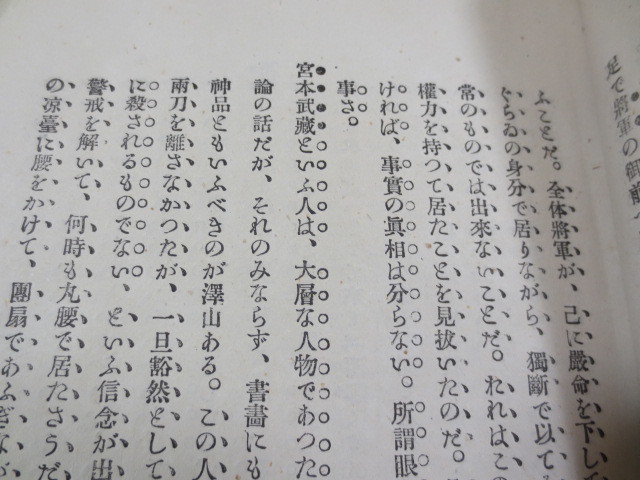 足で將軍の御前
ふことだ。全体將軍が、己に嚴命を下して
ぐらゐの身分で居りながら、獨斷で以て
常のものでは出來ないことだ。おれはこの
權力を持つて居たことを見拔いたのだ。
ければ、事實の眞相は分らない。所謂眼
事さ。
宮本武藏といふ人は、大層な人物であつた
論の話だが、それのみならず、書畫にも
神品ともいふべきのが澤山ある。この人
兩刀を離さなかつたが、一旦豁然として
に殺されるものでない、といふ信念が出
警戒を解いて、何時も丸腰で居たさうだ
の凉臺に腰をかけて、團扇であふぎなが